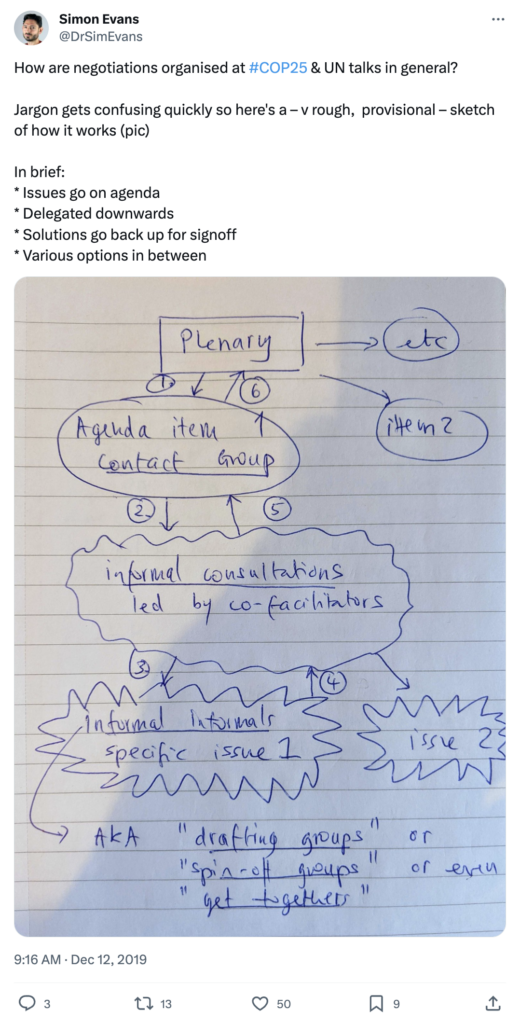 Simon Evans
@DrSimEvans
How are negotiations organised at #COP25 & UN talks in general?
Jargon gets confusing quickly so here's a – v rough, provisional – sketch
of how it works (pic)
In brief:
* Issues go on agenda
* Delegated downwards
* Solutions go back up for signoff
* Various options in between
Plenary
etc
① ⑥
Agenda item
Contact Group
item 2
② ⑤
informal consultations
led by co-facilitators
③ ④
Informal Informals
specific issue 1
issue 2
AKA "drafting groups" or
"spin-off groups" or even
"get togethers"
9:16 AM · Dec 12, 2019
3 13 50 9